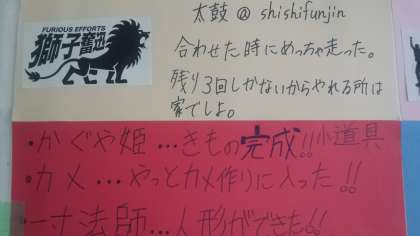 太鼓 @ shishifunjin
FURIOUS EFFORTS
獅子奮迅
合わせた時にめっちゃ走った。
残り3回しかないからやれる所は
家でしよ。
・かぐや姫…きもの完成!!小道具
・カメ…やっとカメ作りに入った!!
・一寸法師…人形ができた!!